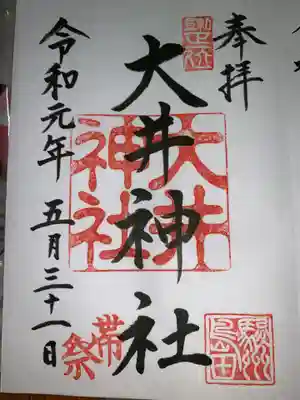 奉拝
大井神社
大井神社
帯祭
駿州島田
令和元年 五月三十一日